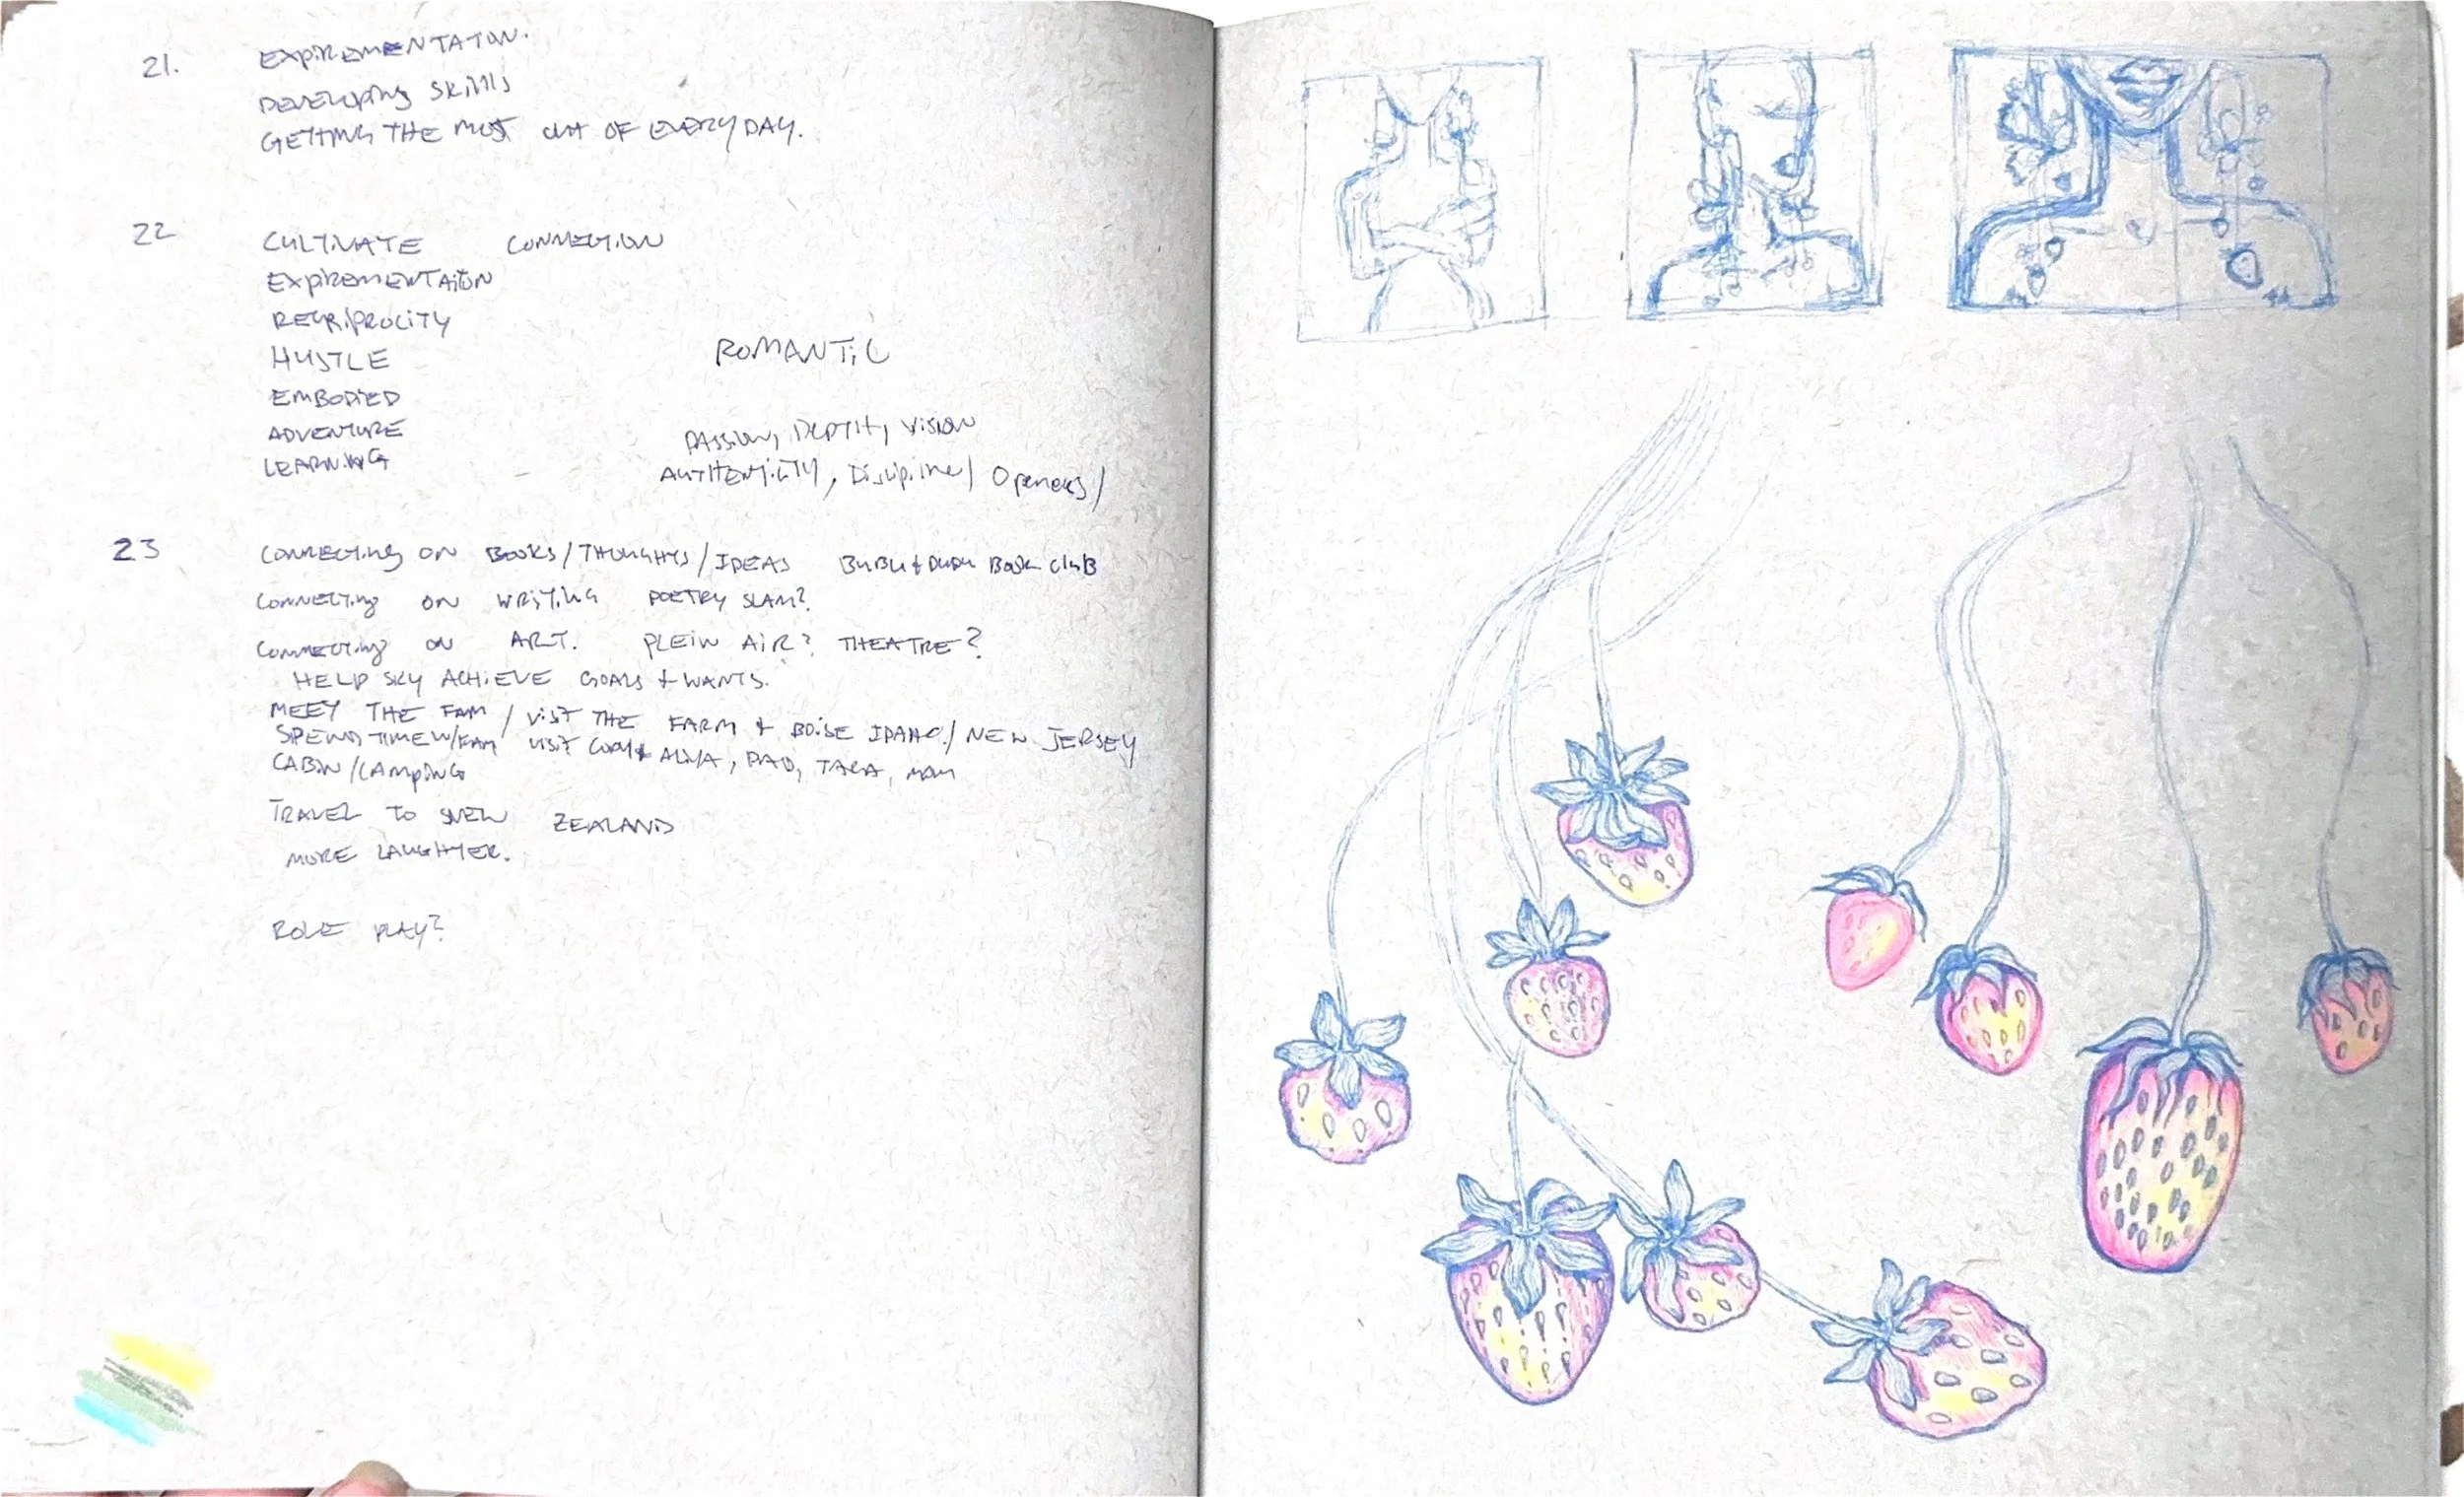 21. EXPIREMENTATION.
DEVELOPING SKILLS
GETTING THE MOST OUT OF EVERY DAY.
22 CULTIVATE CONNECTION
EXPIREMENTAITON
RECRIPROCITY
HUSTLE
ROMANTIC
EMBODIED
ADVENTURE
PASSION, DEPTH, VISION
LEARNING
AUTHENTICITY, Discipline/ Openess/
23 CONNECTING ON BOOKS/THOUGHTS/IDEAS BUBU & DUDU BOOK CluB
CONNECTING ON WRITING POETRY SLAM?
CONNECTING ON ART. PLEIN AIR? THEATRE?
HELP SKY ACHIEVE GOALS & WANTS.
MEET THE FAM / VISIT THE FARM & BOISE IDAHO / NEW JERSEY
SPEND TIME W/FAM VISIT & DAD, TARA, MOM
CABIN/CAMPING
TRAVEL TO NEW ZEALAND
MORE LAUGHTER.
ROLE PLAY?